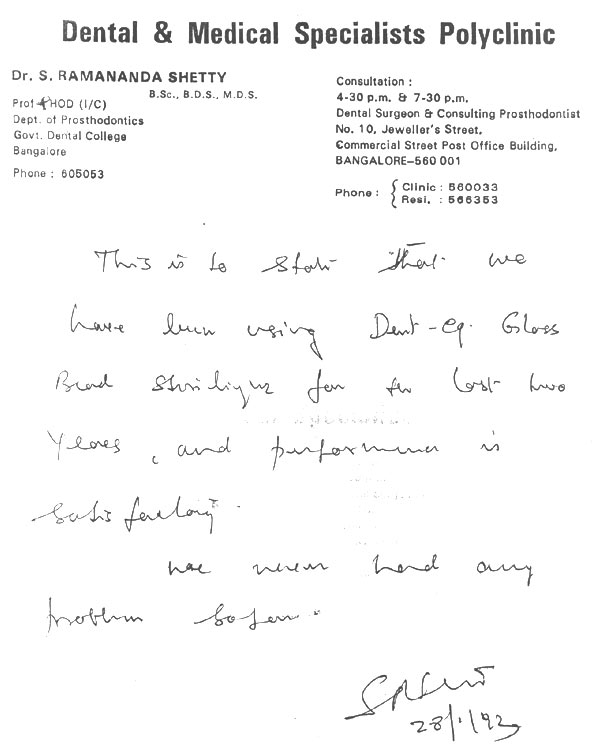 Dental & Medical Specialists Polyclinic
Dr. S. RAMANANDA SHETTY
B.Sc., B.D.S., M.D.S.
Prof & HOD (I/C)
Dept. of Prosthodontics
Govt. Dental College
Bangalore
Phone : 605053
Consultation :
4-30 p.m. & 7-30 p.m.
Dental Surgeon & Consulting Prosthodontist
No. 10, Jeweller's Street,
Commercial Street Post Office Building,
BANGALORE-560 001
Phone : { Clinic : 560033
Resi. : 566353
This is to state that we
have been using Dent-eq. Glass
Bead Steriliger for the last two
Years, and performance is
satisfactory.
We never had any
problem so far.
28/1/92